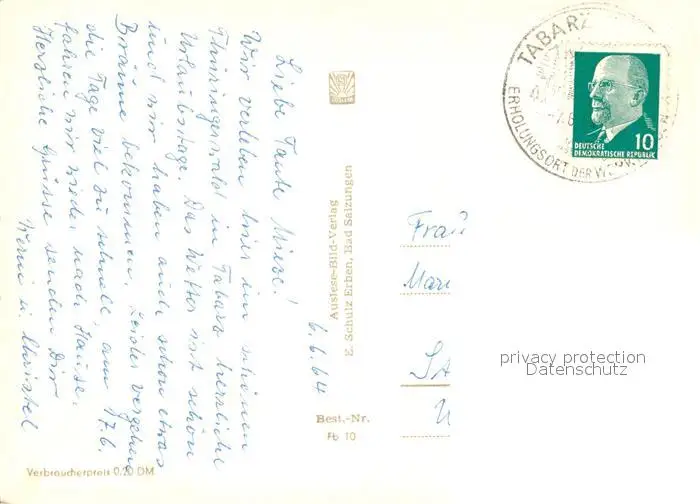 6.6.64
Liebe Tante Miese!
Wir verleben hier im schönen
Thüringerwald in Tabarz herrliche
Urlaubstage. Das Wetter ist schön
und wir haben auch schon etwas
Bräune bekommen. Leider vergehen
die Tage viel zu schnell, am 17.6.
fahren wir wieder nach Hause.
Herzliche Grüsse senden Dir
u. Christel
Auslese-Bild-Verlag
E. Schulz Erben, Bad Salzungen
TABARZ
ERHOLUNGSORT DER
DEUTSCHE
DEMOKRATISCHE REPUBLIK
10
Frau
Mari
privacy protection
Datenschutz
Best.-Nr.
Fb 10
Verbraucherpreis 0,20 DM